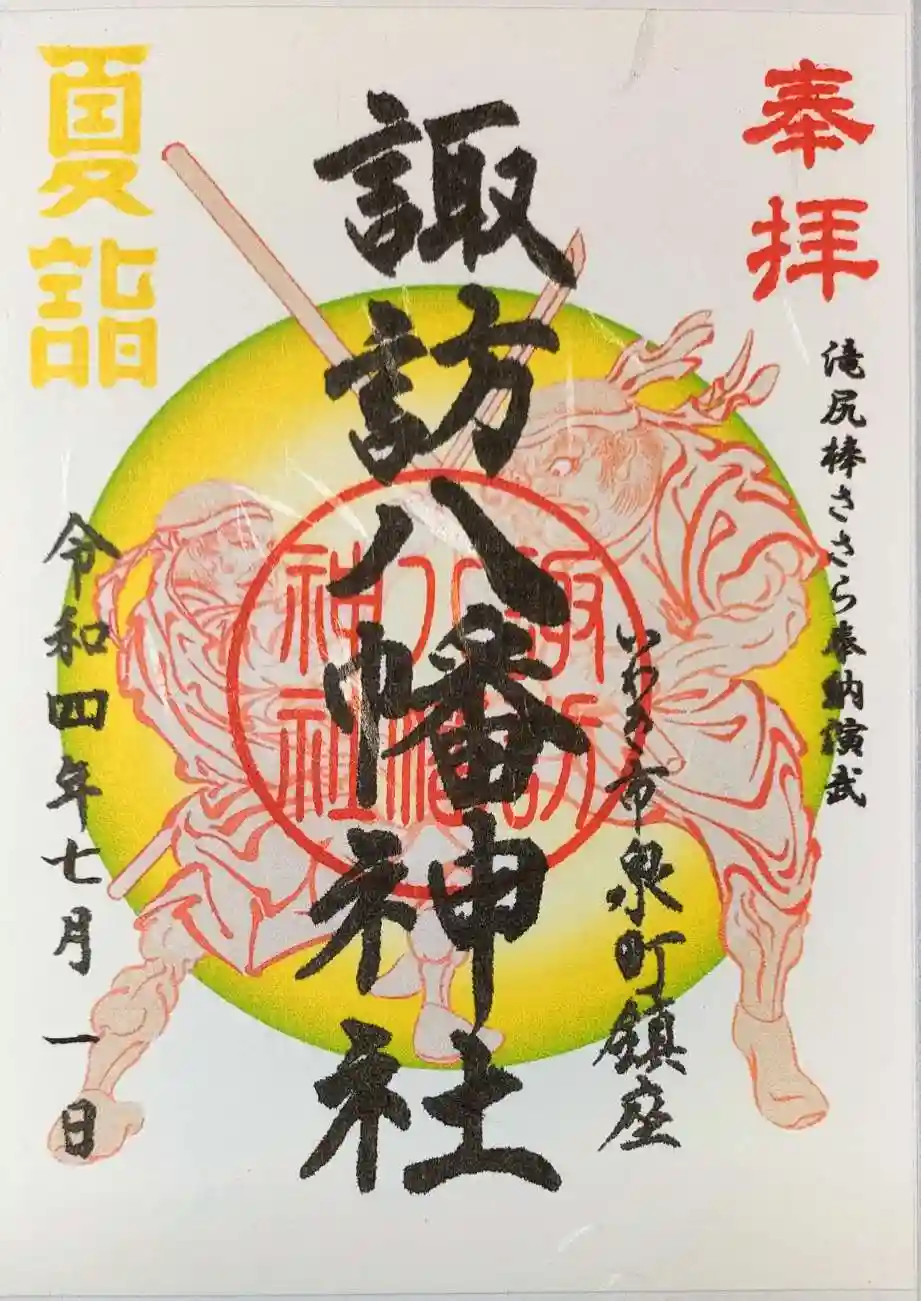 奉拝
滝尻棒ささら奉納演武
いわき市泉町鎮座
諏訪八幡神社
諏訪
八幡
神社
夏詣
令和四年七月一日